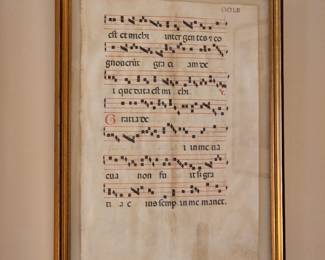 est et mihi inter gentes & co
gnoverūt gra ci am de
i que data est mi hi. ℣
Gratia de
i in me va
cua non fu it s; gra
ti a e ius semp. in me manet.